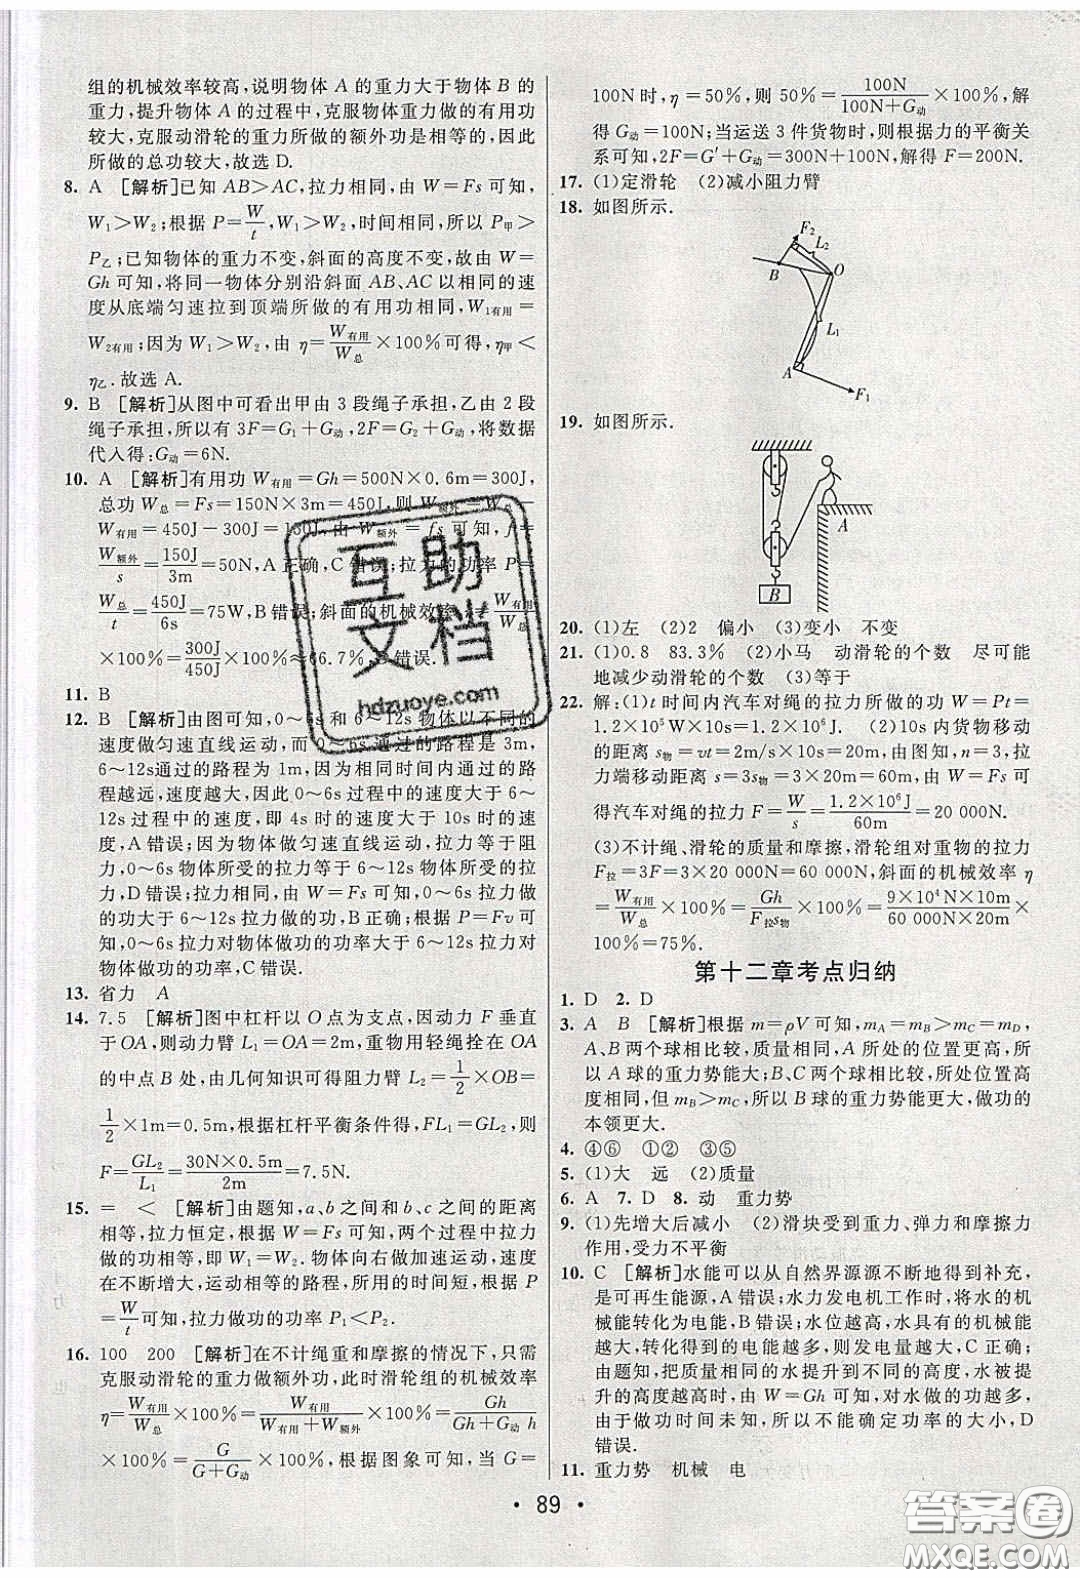 组的机械效率较高,说明物体 A 的重力大于物体 B 的
重力,提升物体 A 的过程中,克服物体重力做的有用功
较大,克服动滑轮的重力所做的额外功是相等的,因此
所做的总功较大,故选 D.
8. A [解析]已知 AB>AC,拉力相同,由 W=Fs 可知,
W₁>W₂;根据 P=W/t,W₁>W₂,时间相同,所以 P甲>
P乙;已知物体的重力不变,斜面的高度不变,故由 W=
Gh 可知,将同一物体分别沿斜面 AB、AC 以相同的速
度从底端匀速拉到顶端所做的有用功相同,W1有用=
W2有用;因为 W₁>W₂,由 η=W有用/W总×100%可得,η甲<
η乙.故选 A.
9. B [解析]从图中可看出甲由 3 段绳子承担,乙由 2 段
绳子承担,所以有 3F=G₁+G动,2F=G₂+G动,将数据
代入得:G动=6N.
10. A [解析]有用功 W有用=Gh=500N×0.6m=300J,
总功 W总=Fs=150N×3m=450J,则 W额外=W总-
W有用=450J-300J=150J,由 W额外=fs 可知,f=
W额外/s=150J/3m=50N,A 正确,C 错误;拉力的功率 P=
W总/t=450J/6s=75W,B 错误;斜面的机械效率 η=W有用/W总
×100%=300J/450J×100%≈66.7%,D 错误.
11. B
12. B [解析]由图可知,0~6s 和 6~12s 物体以不同的
速度做匀速直线运动,而 0~6s 通过的路程是 3m,
6~12s通过的路程为 1m,因为相同时间内通过的路
程越远,速度越大,因此 0~6s 过程中的速度大于 6~
12s过程中的速度,即 4s 时的速度大于 10s 时的速
度,A 错误;因为物体做匀速直线运动,拉力等于阻
力,0~6s 物体所受的拉力等于 6~12s 物体所受的拉
力,D 错误;拉力相同,由 W=Fs 可知,0~6s 拉力做
的功大于 6~12s 拉力做的功,B 正确;根据 P=Fv 可
知,0~6s 拉力对物体做功的功率大于 6~12s 拉力对
物体做功的功率,C 错误.
13. 省力 A
14. 7.5 [解析]图中杠杆以 O 点为支点,因动力 F 垂直
于 OA,则动力臂 L₁=OA=2m,重物用轻绳拴在 OA
的中点 B 处,由几何知识可得阻力臂 L₂=1/2×OB=
1/2×1m=0.5m,根据杠杆平衡条件得,FL₁=GL₂,则
F=GL₂/L₁=30N×0.5m/2m=7.5N.
15. = < [解析]由题知,a、b 之间和 b、c 之间的距离
相等,拉力恒定,根据 W=Fs 可知,两个过程中拉力
做的功相等,即 W₁=W₂.物体向右做加速运动,速度
在不断增大,运动相等的路程,所用的时间短,根据 P
=W/t可知,拉力做功的功率 P₁<P₂.
16. 100 200 [解析]在不计绳重和摩擦的情况下,只需
克服动滑轮的重力做额外功,此时滑轮组的机械效率
η=W有用/W总×100%=W有用/(W有用+W额外)×100%=Gh/(Gh+G动h)
×100%=G/(G+G动)×100%,根据图象可知,当 G=
100N 时,η=50%,则 50%=100N/(100N+G动)×100%,解
得 G动=100N;当运送 3 件货物时,则根据力的平衡关
系可知,2F=G′+G动=300N+100N,解得 F=200N.
17. (1)定滑轮 (2)减小阻力臂
18. 如图所示.
F₂
L₂
B
O
L₁
A
F₁
19. 如图所示.
A
B
20. (1)左 (2)2 偏小 (3)变小 不变
21. (1)0.8 83.3% (2)小马 动滑轮的个数 尽可能
地减少动滑轮的个数 (3)等于
22. 解:(1)t 时间内汽车对绳的拉力所做的功 W=Pt=
1.2×10⁵W×10s=1.2×10⁶J (2)10s 内货物移动
的距离 s物=vt=2m/s×10s=20m,由图知,n=3,拉
力端移动距离 s=3s物=3×20m=60m,由 W=Fs 可
得汽车对绳的拉力 F=W/s=1.2×10⁶J/60m=20 000N.
(3)不计绳、滑轮的质量和摩擦,滑轮组对重物的拉力
F拉=3F=3×20 000N=60 000N,斜面的机械效率 η
=W有用/W总×100%=Gh/F拉s物×100%=9×10⁴N×10m/60 000N×20m×
100%=75%.
第十二章考点归纳
1. D 2. D
3. A B [解析]根据 m=ρV 可知,mA=mB>mC=mD,
A、B 两个球相比较,质量相同,A 所处的位置更高,所
以 A 球的重力势能大;B、C 两个球相比较,所处位置高
度相同,但 mB>mC,所以 B 球的重力势能更大,做功的
本领更大.
4. ④⑥ ①② ③⑤
5. (1)大 远 (2)质量
6. A 7. D 8. 动 重力势
9. (1)先增大后减小 (2)滑块受到重力、弹力和摩擦力
作用,受力不平衡
10. C [解析]水能可以从自然界源源不断地得到补充,
是可再生能源,A 错误;水力发电机工作时,将水的机
械能转化为电能,B 错误;水位越高,水具有的机械能
越大,转化得到的电能越多,则发电量越大,C 正确;
由题知,把质量相同的水提升到不同的高度,水被提
升的高度越高时,由 W=Gh 可知,对水做的功越多,
由于做功时间未知,所以不能确定功率的大小,D
错误.
11. 重力势 机械 电
• 89 •
互助文档
hdzuoye.com
答案圈
MXQE.COM